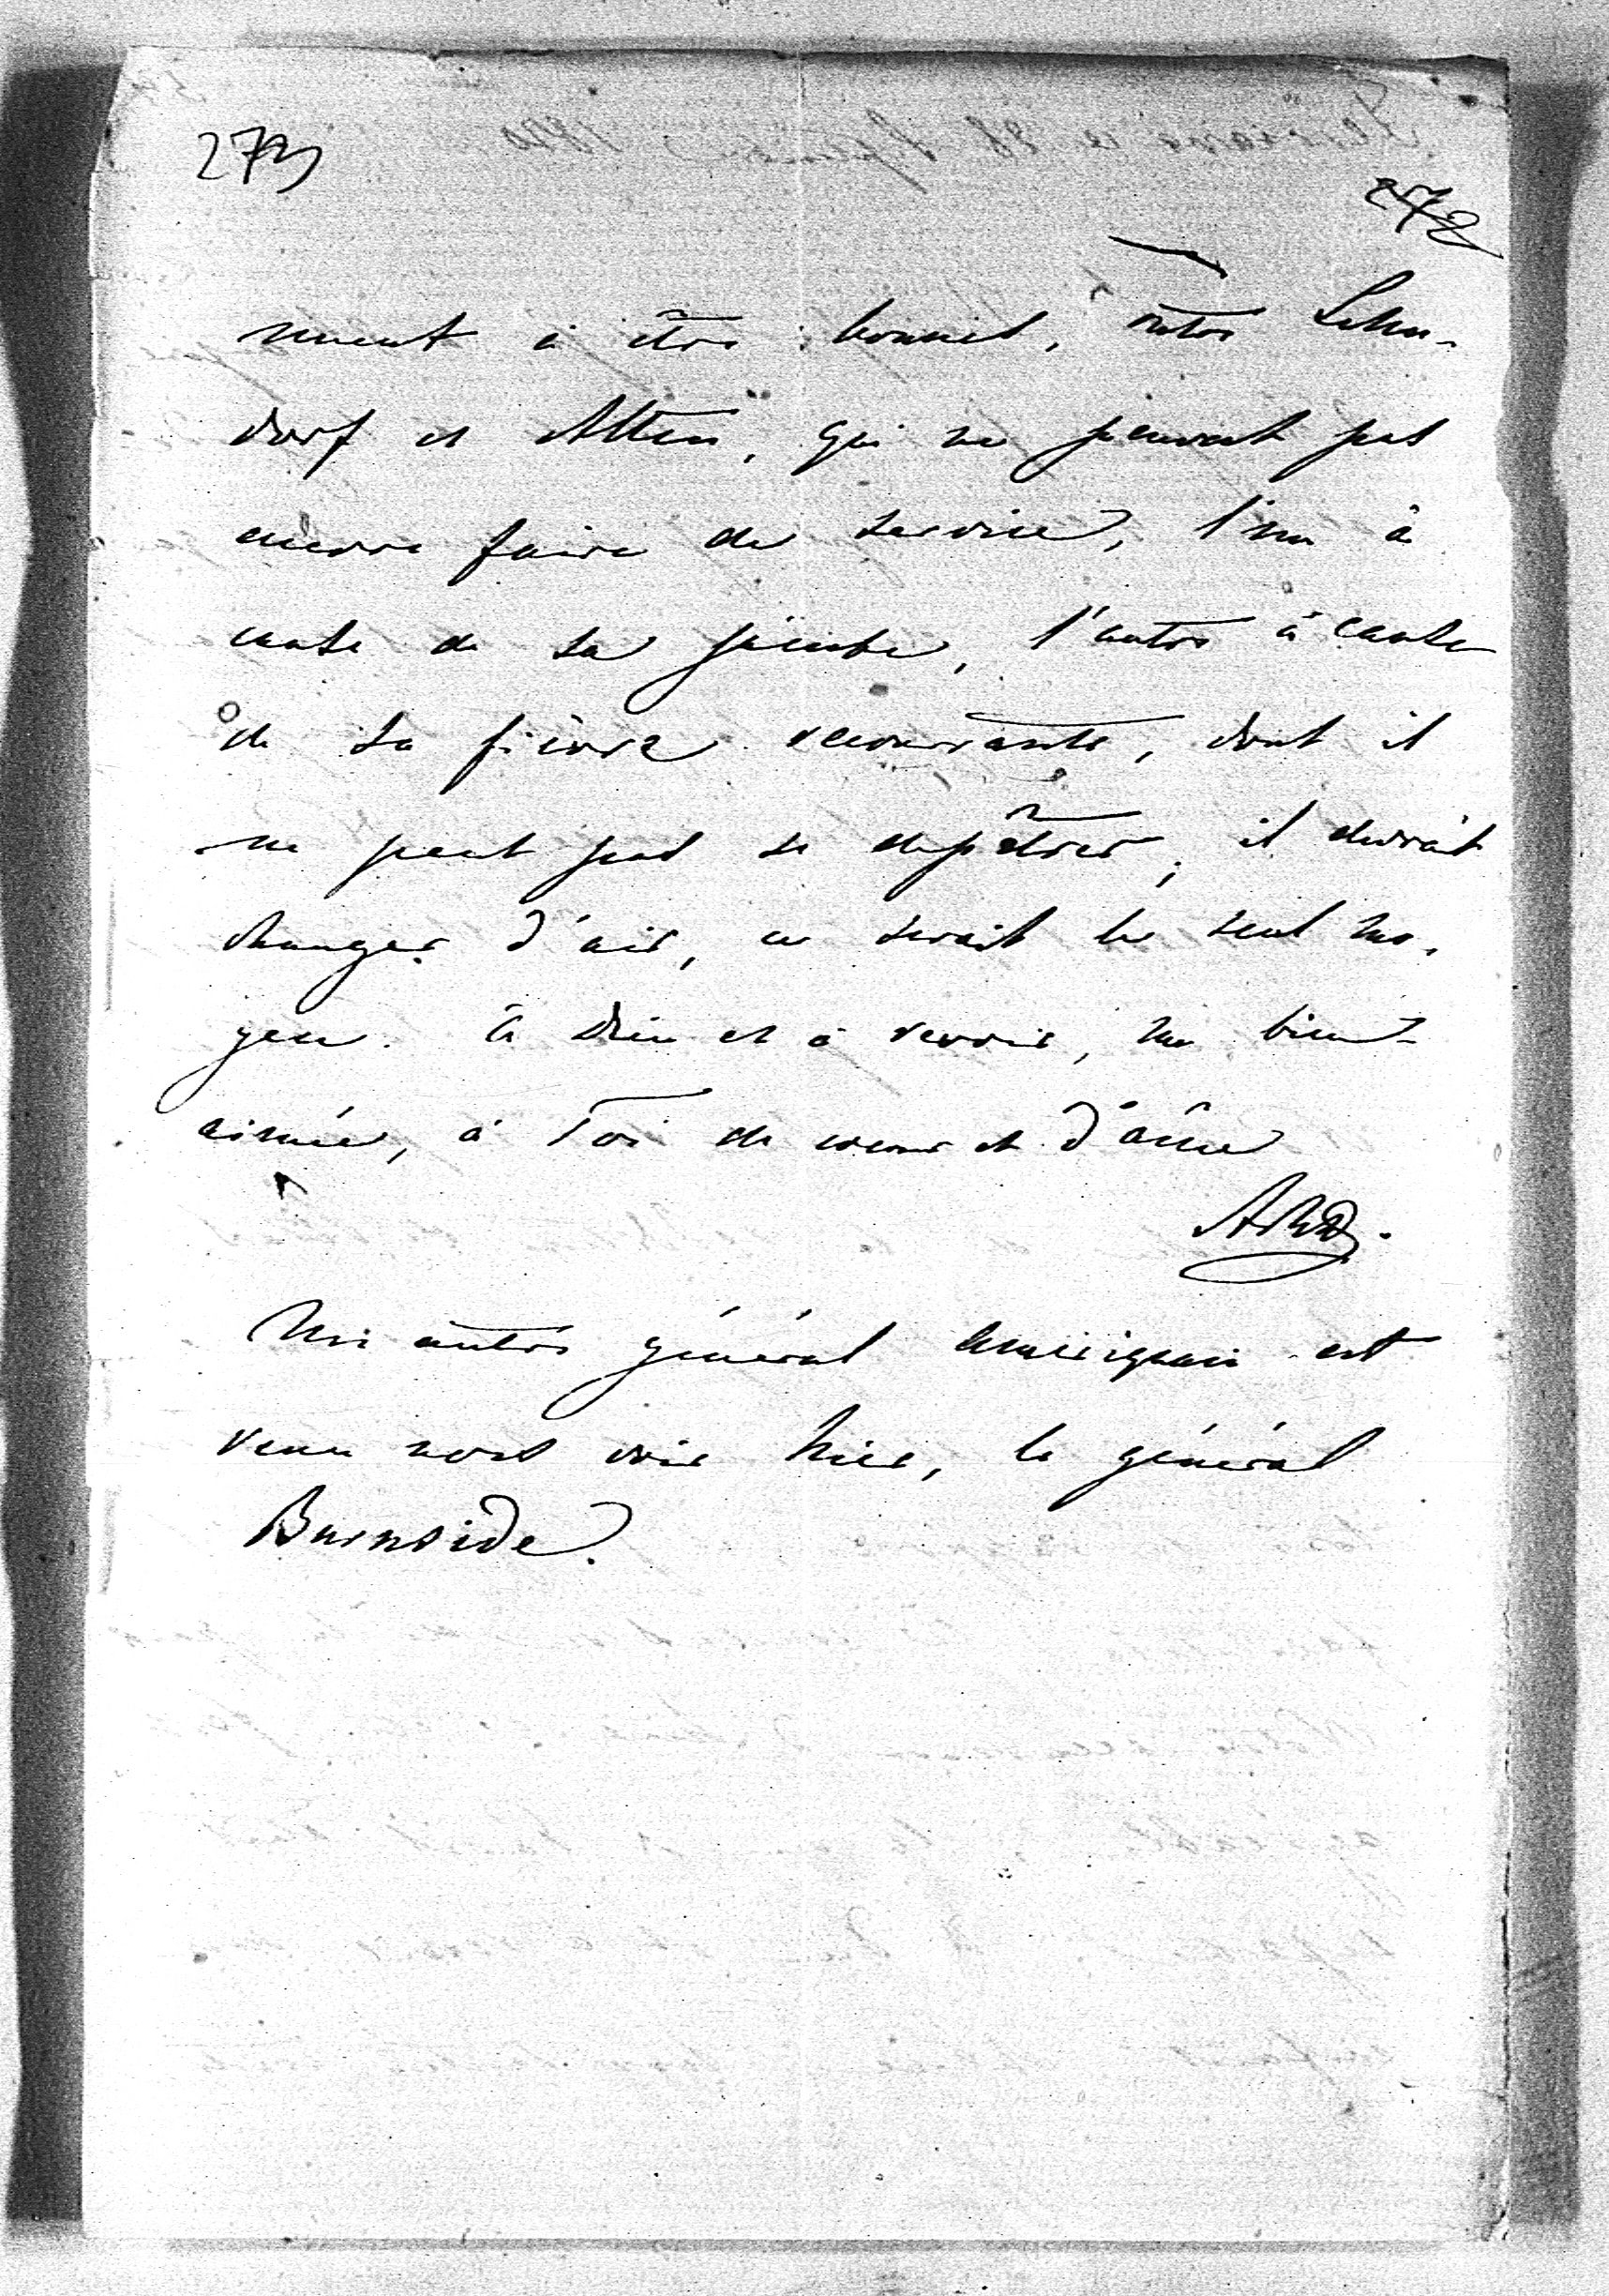 273
272
ment à être bonnes, outre Lehn-
dorf et Alten, qui ne peuvent pas
encore faire de service, l'un à
cause de sa jambe, l'autre à cause
de sa fièvre recourrante, dont il
ne peut pas se dépêtrer, il devrait
changer d'air, ce serait le seul mo-
yen. à Dieu et à revoir, ma bien-
aimée, à Toi de coeur et d'âme
Un autre général américain est
venu nous voir hier, le général
Burnside.